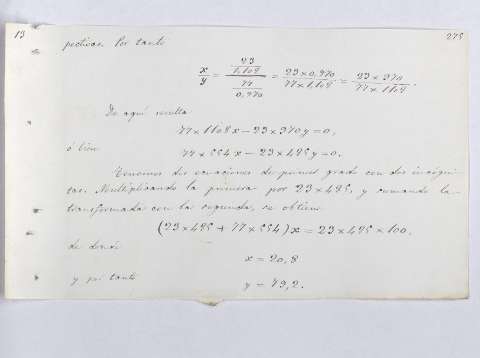 13 275
pectivas. Por tanto
x/y = (23/1,108)/(77/0,970) = 23×0,970/77×1,108 = 23×970/77×1108.
De aquí resulta
77×1108x−23×970y=0,
ó bien
77×554x−23×485y=0.
Tenemos dos ecuaciones de primer grado con dos incógni-
tas. Multiplicando la primera por 23×485, y sumando la
transformada con la segunda, se obtiene
(23×485+77×554)x=23×485×100.
de donde
x=20,8
y por tanto
y=79,2.